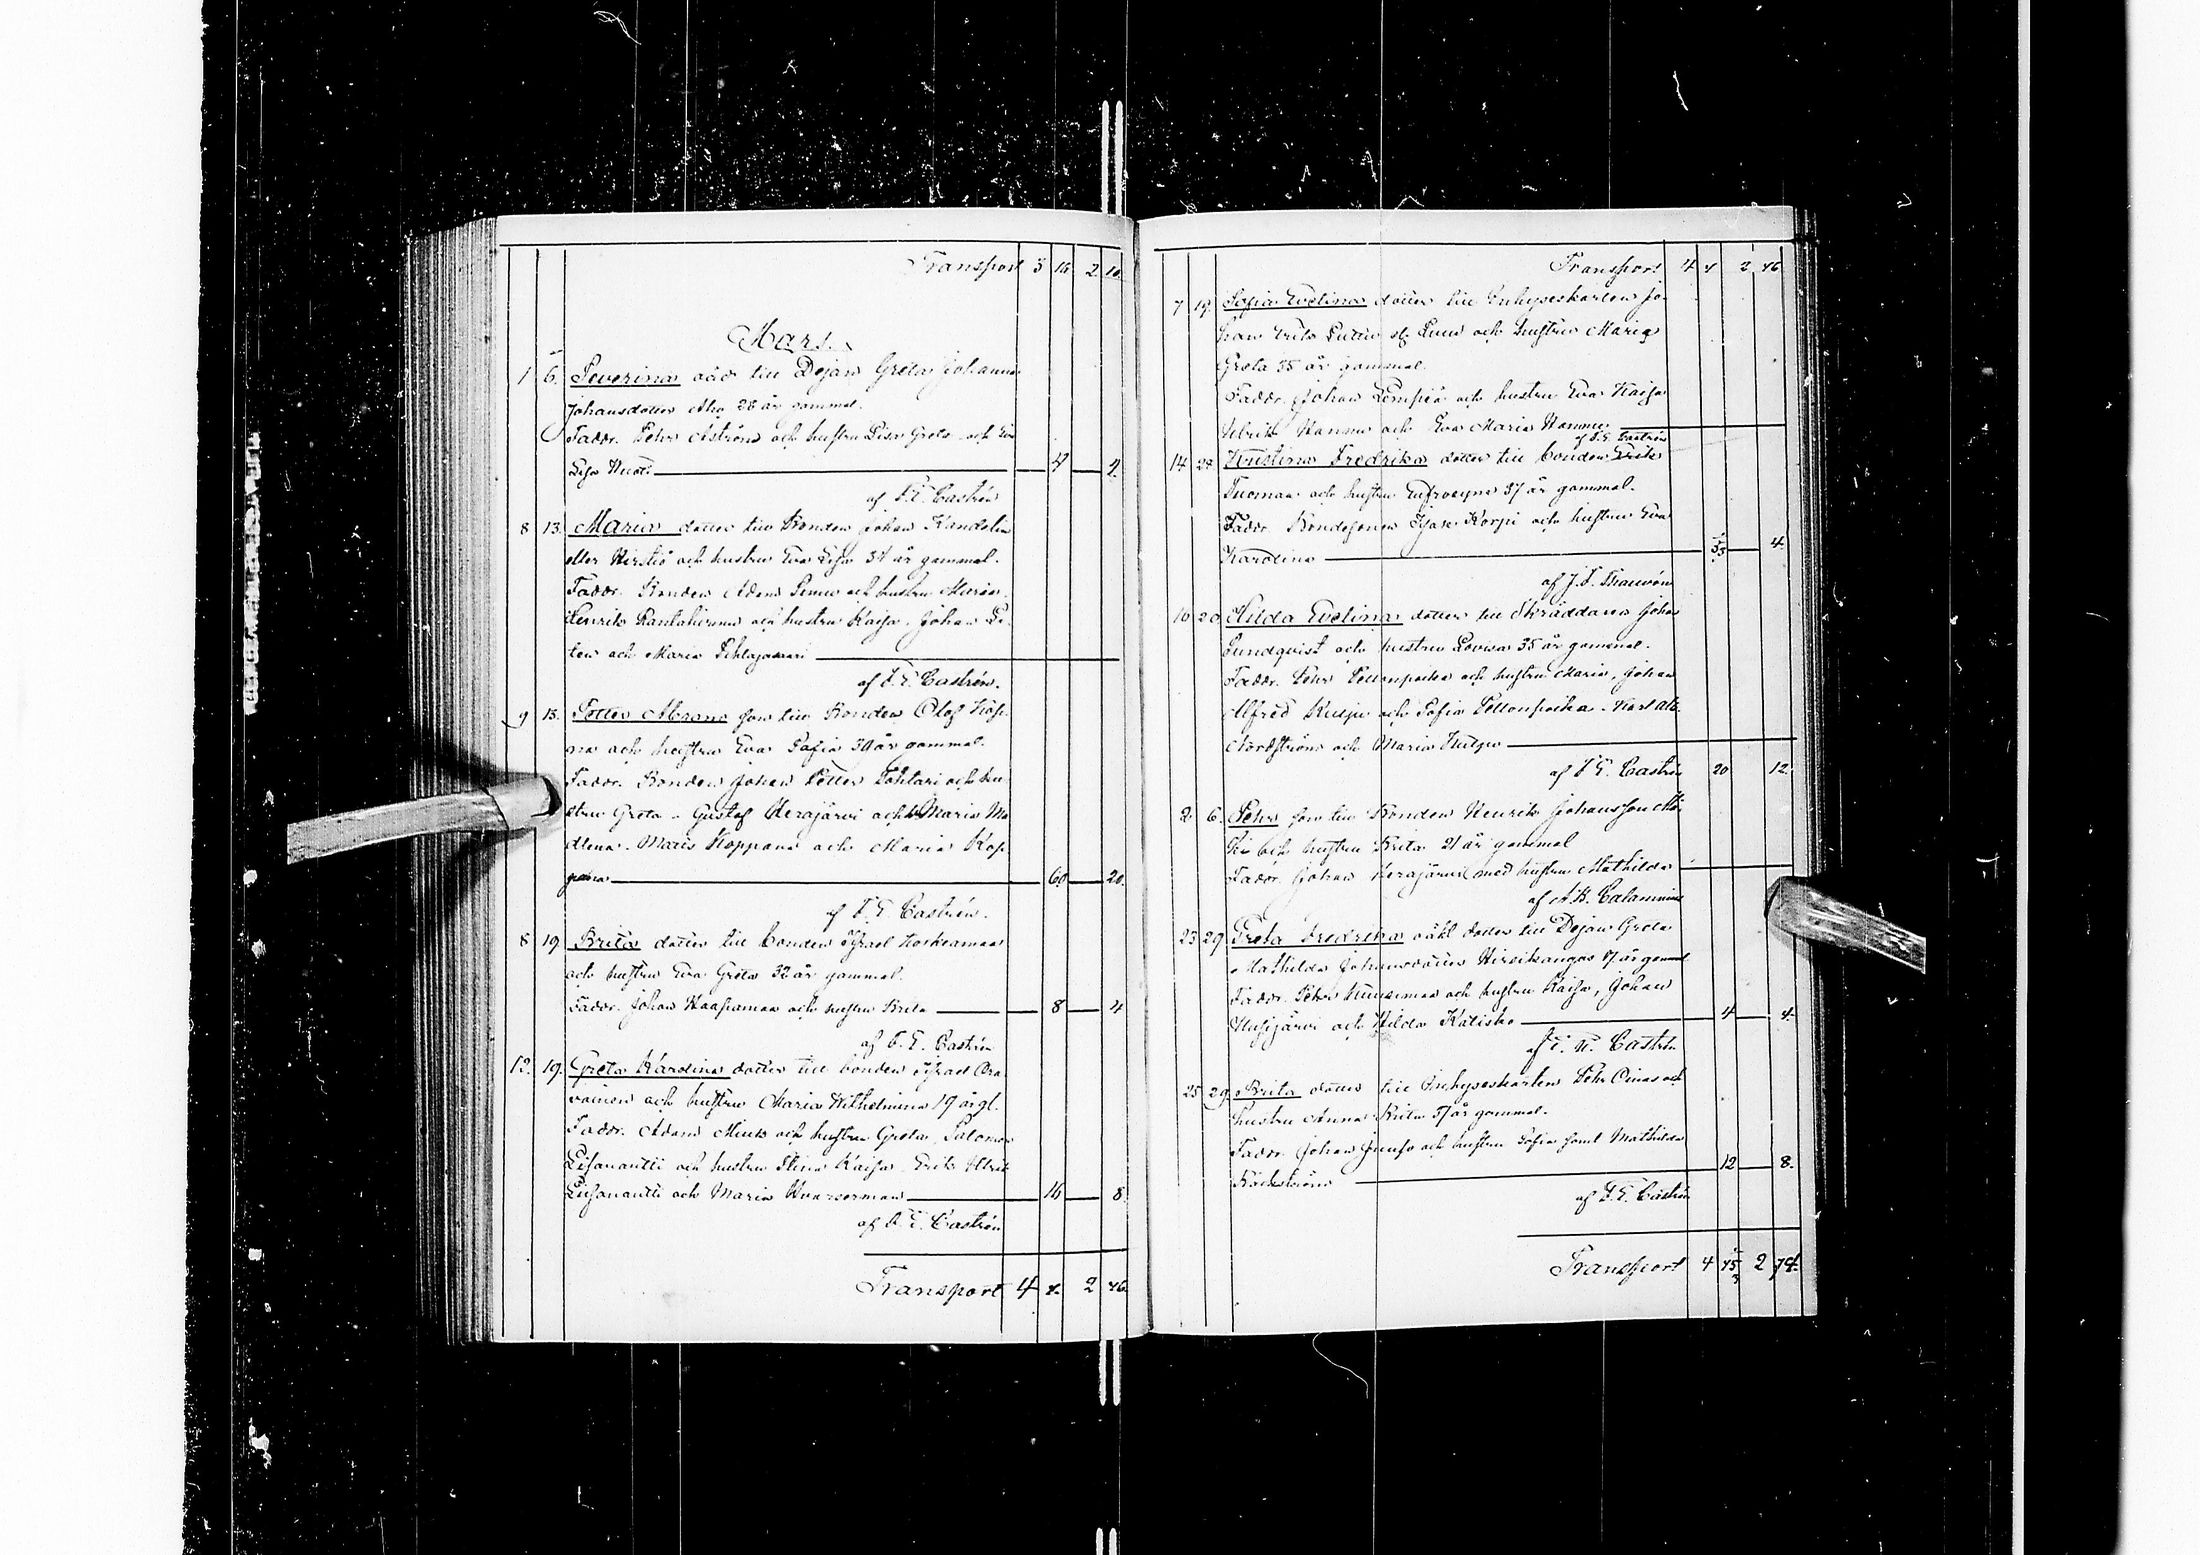 Transport 3 16 2 10.
Mars.
1 6. Severina oäd till Pejan Greta Johanna
Johansdotter Aho 28 år gammal.
Faddr. Pehr Åström och hustru Lisa Greta och
Lisa 4 2
af F. E. Castrén
8 13. Maria dotter till Bonden Johan Kandelin
eller och hustru Eva Lisa 34 år gammal.
Faddr. Bonden Adam och hustru Maria.
Henrik Rantahirvas och hustru Kajsa. Johan
och Maria
af F. E. Castrén.
9 13. Petter Abram son till Bonden Olof
och hustru Eva Sofia 39 år gammal.
Faddr. Bonden Johan Petter Tohtari och hu-
stru Greta. Gustaf Kerajärvi och Maria Ma
dlena. Maria Koppana och Maria Kop
pana 60 20.
af F. E. Castrén.
8 19 Brita dotter till bonden Israel
och hustru Eva Greta 32 år gammal.
Faddr. Johan och hustru Brita 8 4
af F. E. Castrén
12. 19. Greta Karolina dotter till bonden Israel Ora
vainen och hustru Maria Wilhelmina 19 år gl.
Faddr. Adam och hustru Greta, Salomon
Liisanantti och hustru Stina Kajsa. Erik Ulrik
Liisanantti och Maria 16 8.
af F. E. Castrén
Transport 4 4. 2 46.
Transport 4 4 2 46
7 19. Sofia Evelina dotter till Inhyseskarlen Jo-
han Erik och hustru Maria
Greta 35 år gammal.
Faddr. Johan Lempiä och hustru Eva Kajsa
Ulrik Hannu och Eva Maria Hannu
af F. E. Castrén
14 28. Kristina Fredrika dotter till bonden Erik
Tuomaa och hustru Eufrosyne 37 år gammal.
Faddr. Bondesonen Isak Korpi och hustru Eva
Karolina 4.
af J. F. Thauvón
16 20. Hilda Evelina dotter till Skräddaren Johan
Lundqvist och hustru Lovisa 35 år gammal.
Faddr. Pehr Pellonpoika och hustru Maria, Johan
Alfred och Sofia Pellonpoika. Karl
Nordström och Maria
af F. E. Castrén 20 12.
2 6. Pehr son till Bonden Henrik Johansson Mä-
ki och hustru Brita 21 år gammal
Faddr. Johan Kerajärvi med hustru Mathilda
af A. B. Calamnius
23 29. Greta Fredrika oäkt dotter till Pejan Greta
Mathilda Johansdotter Hirsikangas 17 år gammal
Faddr. Pehr och hustru Kajsa, Johan
Uusijärvi och Hilda Kätiskö 4 4.
af F. E. Castrén
25 29. Brita dotter till Inhyseskarlen Pehr Oinas och
hustru Anna Brita 37 år gammal.
Faddr. Johan Junso och hustru Sofia samt Mathilda
Bäckström 12 8.
af F. E. Castrén
Transport 4 2 74.